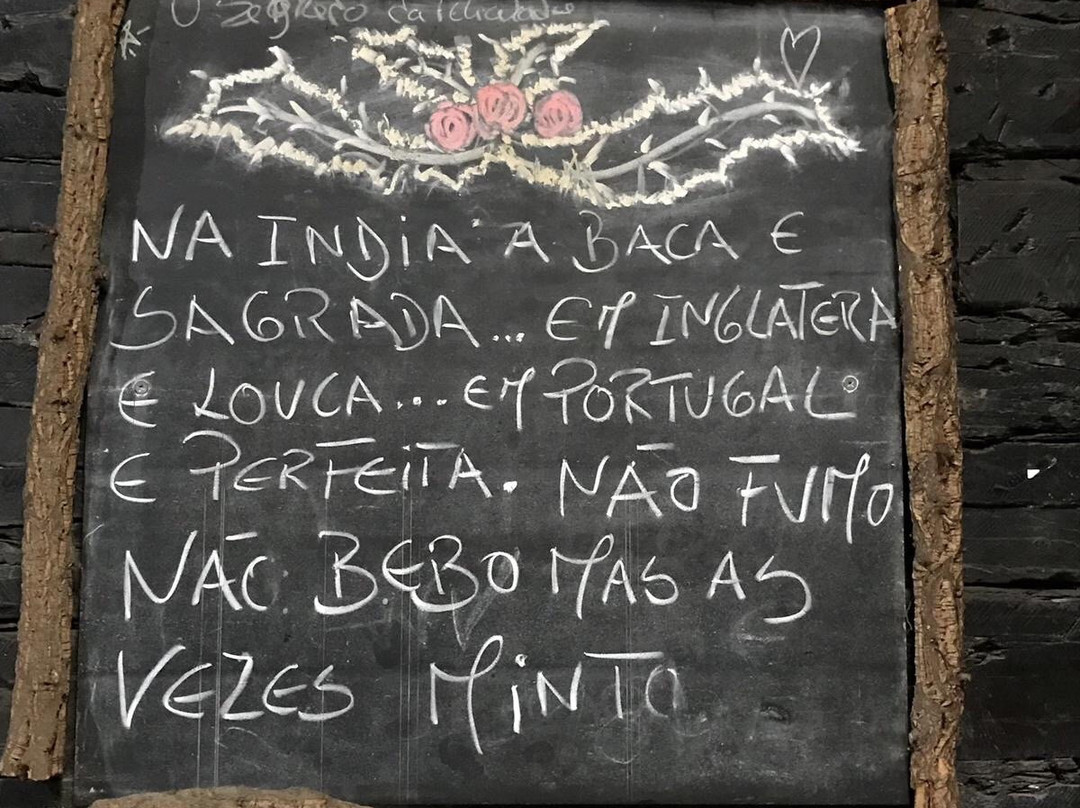 O Segredo
NA INDIA A BACA E
SAGRADA... EM INGLATERA
E LOUCA... EM PORTUGAL
E PERFEITA. NÃO FUMO
NÃO BEBO MAS AS
VEZES MINTO